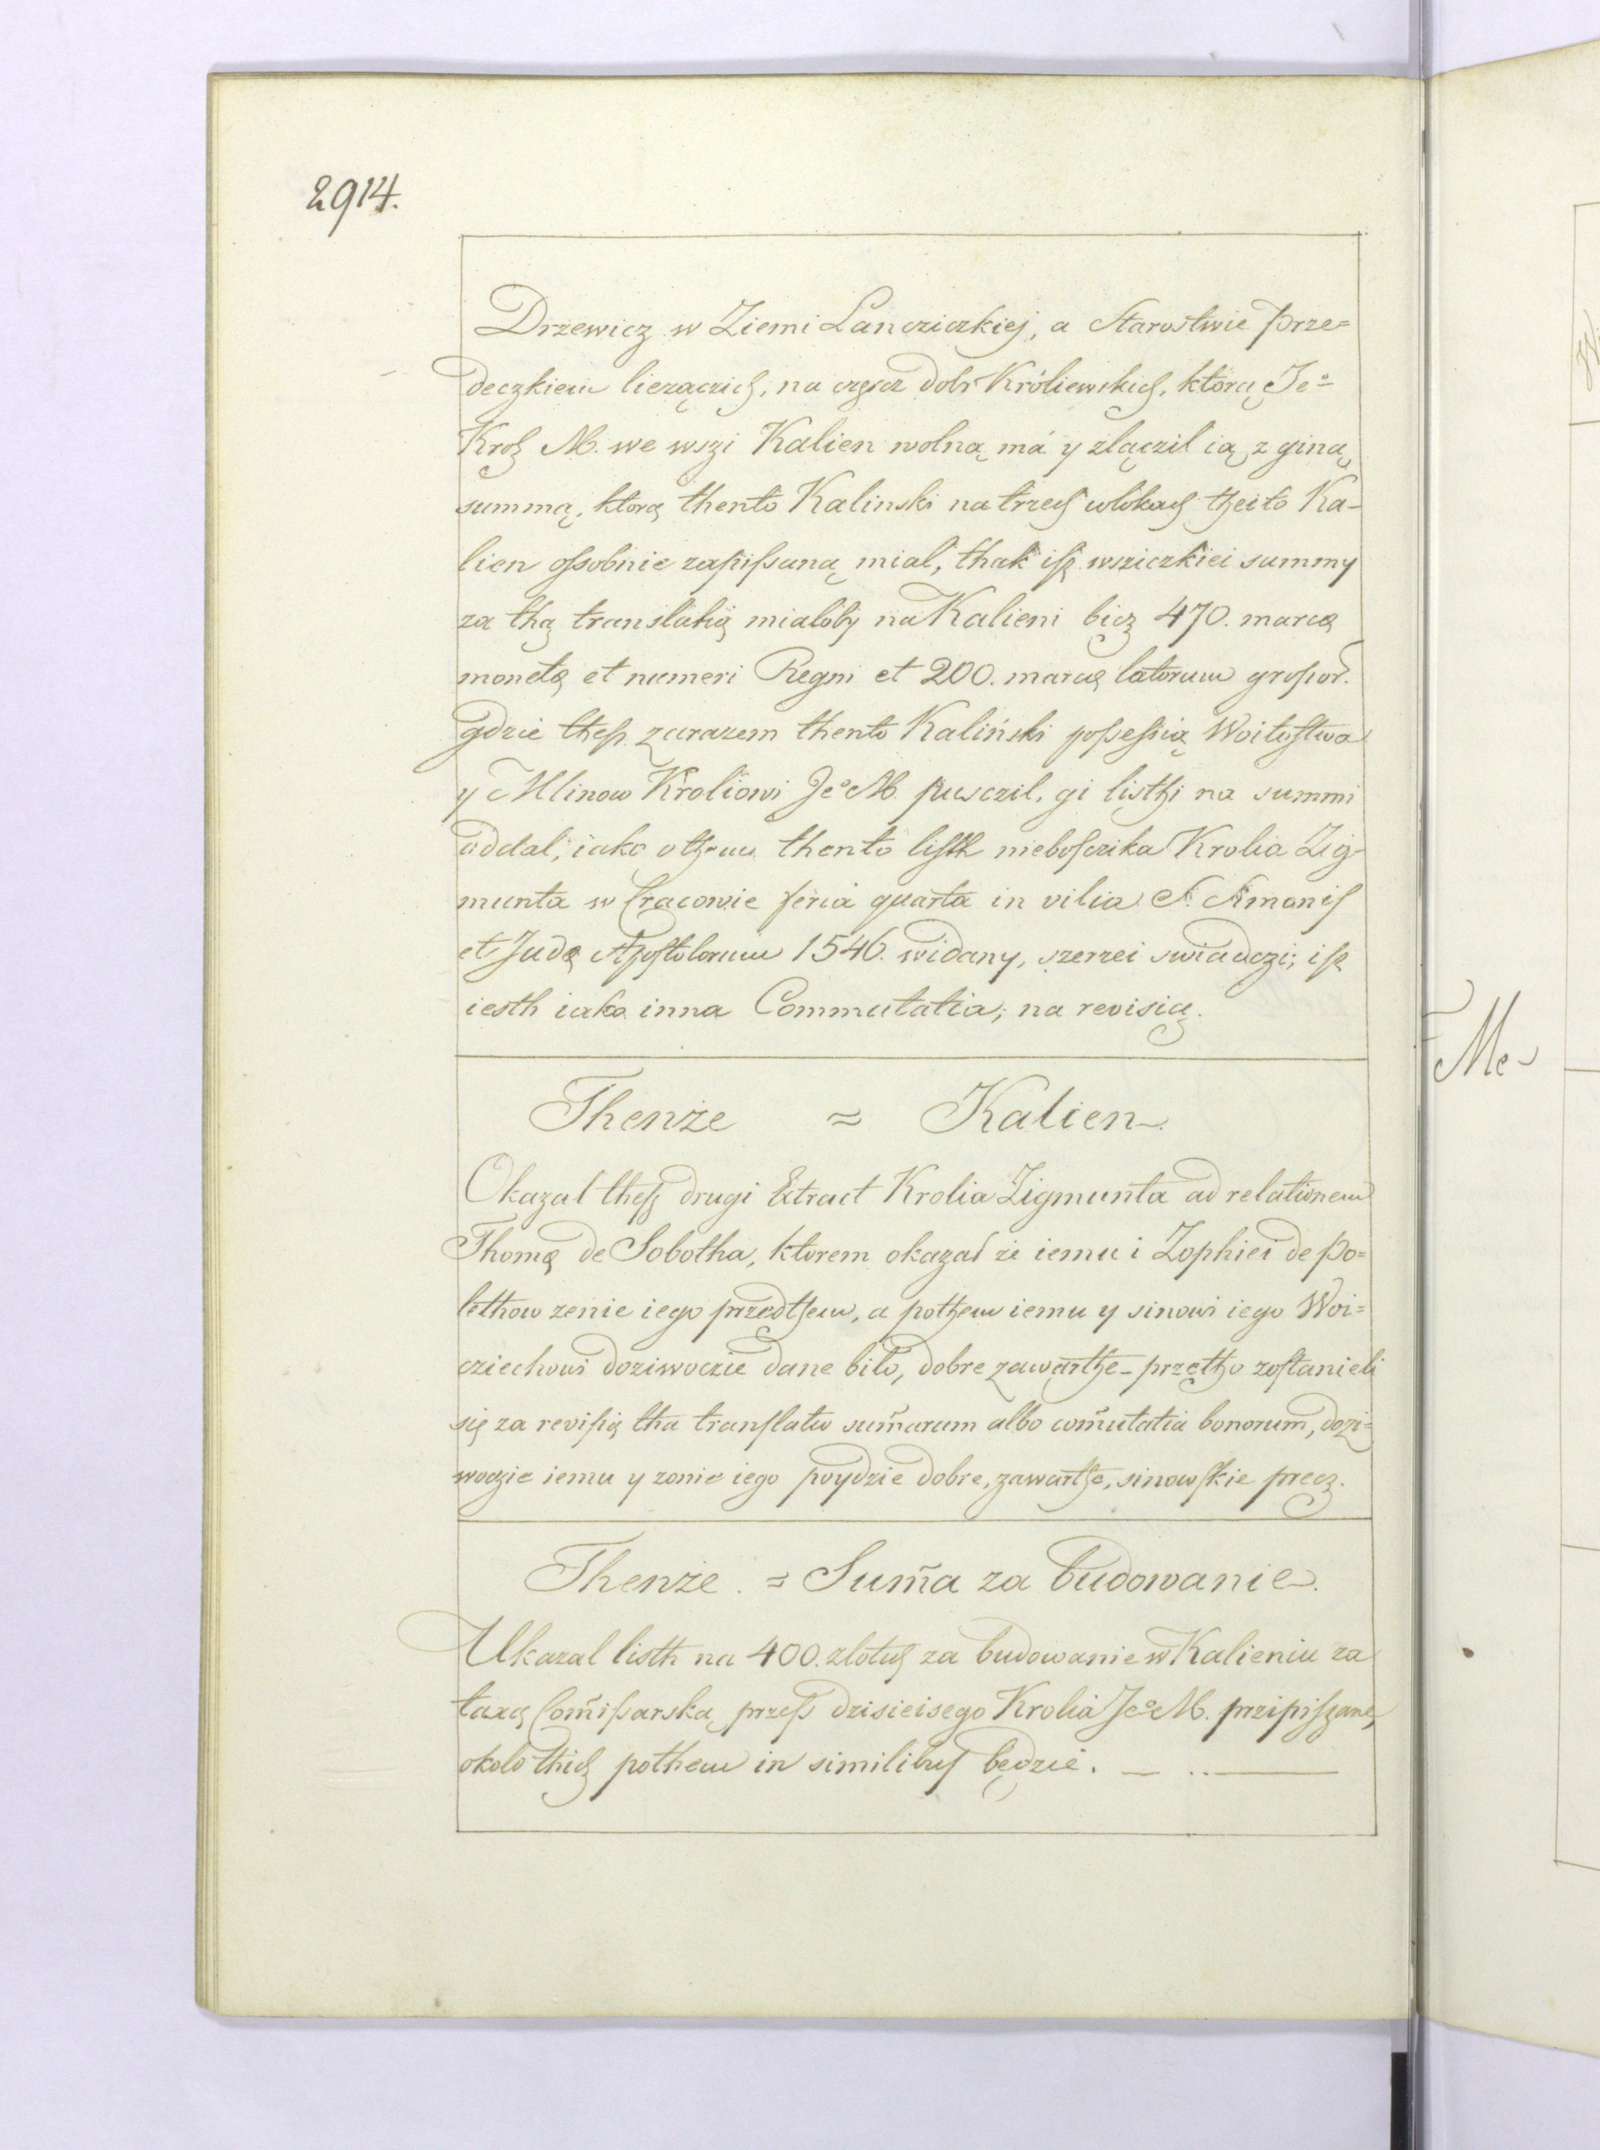 2914.
Drzewicz w Ziemi Lancziczkiej, a Starostwie prze=
deczkiem liezączich, na częscz dobr Króliewskich, którą Je°
Krolz M. we wszi Kalien wolną má y złączil ią z giną
summą, ktorą thento Kalinski na trzech wlokach theito Ka-
lien ossobnie zapissaną mial, thak isz wsziczkiei summy
za thą translatią mialoby na Kalieni bicz 470. marcę
monetę et numeri Regni et 200. marcę latorum grossor.
gdzie thesz zarazem thento Kaliński possessią Woitostwa
y Mlinow Kroliowi Je° M. pusczil, gi listhi na summi
oddal, iako othem thento listh nieboszczika Krolia Zig-
munta w Cracowie feria quarta in vilia S. Simonis
et Judę Apostolorum 1546. widany, szerzei swiadczi; isz
iesth iako inna Commutatia, na revisią.
Thenże = Kalien.
Okazal thesz drugi Extract Krolia Zigmunta ad relationem
Thomę de Sobotha, ktorem okazał że iemu i Zophiei de Po=
lethow zenie iego przedthem, a pothem iemu y sinowi iego Woi=
cziechowi dozywoczie dane bilo, dobre zawarthe - przetho zostanieli
się za revisią tha translatio sum̃arum albo com̃utatia bonorum, dozi=
woczie iemu y zonie iego poydzie dobre, zawarthe, sinowskie precz.
Thenże. = Sum̃a za budowanie.
Ukazal listh na 400. zlotich za budowanie w Kalieniu za
taxą Com̃issarską przesz dzisieisego Krolia Je° M. przipiszane,
okolo thich pothem in similibus będzie.
Me